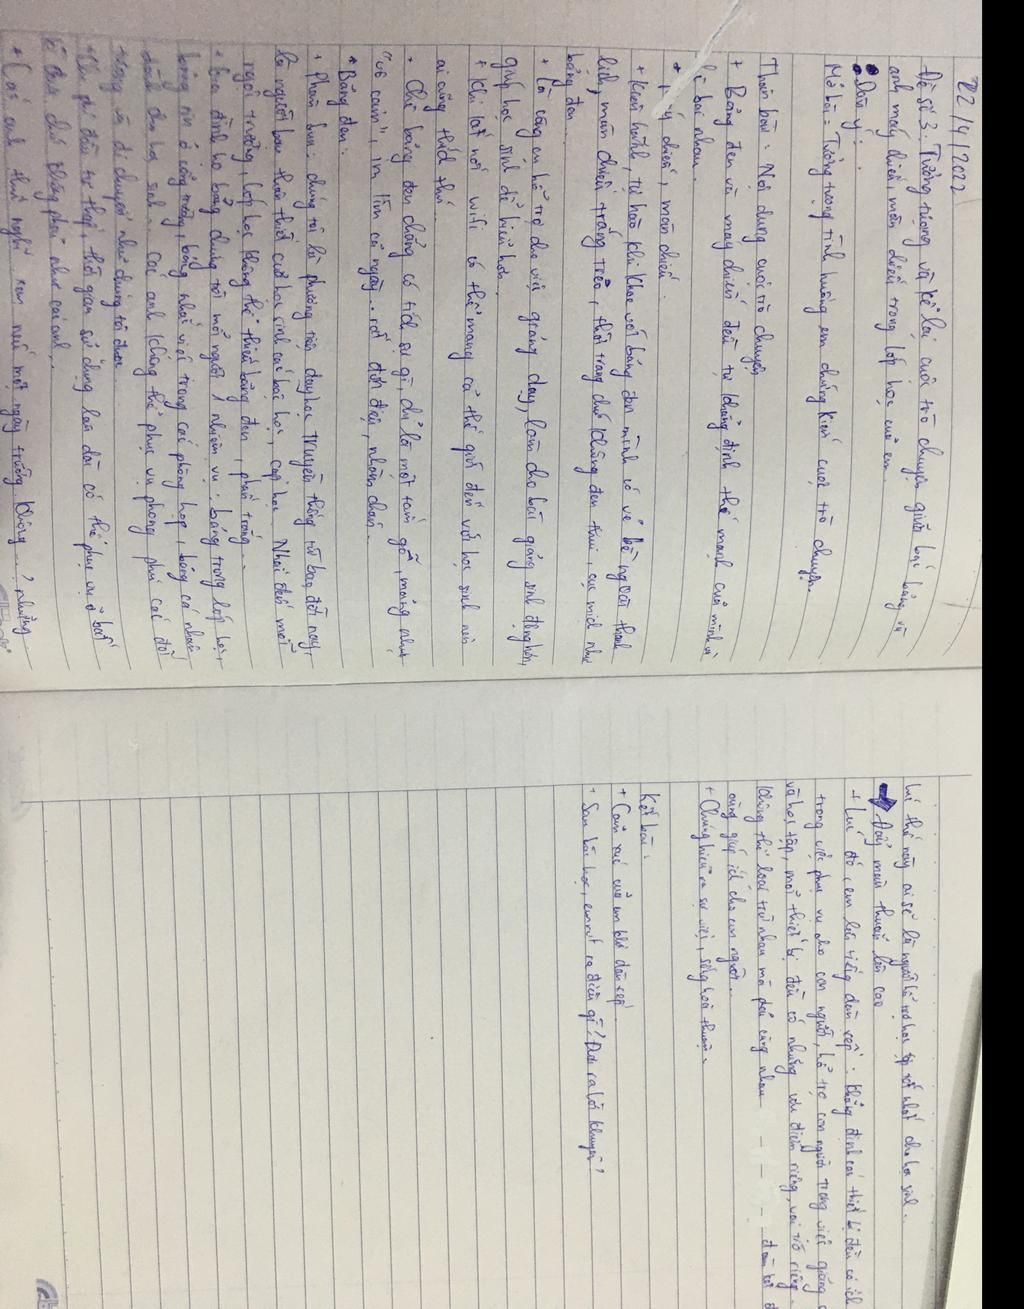 22/4/2022
Đề số 3: Tưởng tượng và kể lại cuộc trò chuyện giữa bác bảng và
anh máy chiếu, màn chiếu trong lớp học của em.
Dàn ý:
Mở bài: Tưởng tượng tình huống em chứng kiến cuộc trò chuyện.
Thân bài: Nội dung cuộc trò chuyện
+ Bảng đen và máy chiếu đều tự khẳng định thế mạnh của mình và
bài nhau.
* chiếu, màn chiếu:
+ Kiêu hãnh, tự hào khi khoe với bảng đen mình có vẻ bề ngoài thanh
lịch, màn chiếu trắng trẻo, thời trang chứ không đen thui, cục mịch như
bảng đen.
+ Là công cụ hỗ trợ cho việc giảng dạy, làm cho bài giảng sinh động hơn,
giúp học sinh dễ hiểu hơn.
+ Khi kết nối wifi có thể mang cả thế giới đến với học sinh nên
ai cũng thích thú.
+ Chê bảng đen chẳng có tích sự gì, chỉ là một tấm gỗ, mảng nhựa
vô cảm, im lìm cả ngày.. rất đơn điệu, nhàm chán.
* Bảng đen:
+ Phản bác: chúng tôi là phương tiện dạy học truyền thống từ bao đời nay,
là người bạn thân thiết của học sinh các bài học, cấp học. Nhắc đến mỗi
ngôi trường, lớp học không thể thiếu bảng đen, phấn trắng.
+ Gia đình họ bảng chúng tôi mỗi người 1 nhiệm vụ: bảng trong lớp học,
bảng tin ở cổng trường, bảng nhắc việc trong các phòng họp, bảng cá nhân
dành cho học sinh... Các anh không thể phục vụ phong phú các đối
tượng và di chuyển như chúng tôi được.
+ Chi phí đầu tư thấp, thời gian sử dụng lâu dài có thể phục vụ ở bất
kì đâu chứ không phải như các anh...
+ Các anh thử nghĩ xem nếu một ngày trường không ? nhường
thế này ai sẽ là người hỗ trợ học tập tốt nhất cho học sinh.
Đẩy mâu thuẫn lên cao
+ Lúc đó, em lên tiếng dàn xếp: Khẳng định các thiết bị đều có ích
trong việc phục vụ cho con người, hỗ trợ con người trong việc giảng
và học tập, mỗi thiết bị đều có những ưu điểm riêng, vai trò riêng
không thể loại trừ nhau mà phải cùng nhau
cùng giúp ích cho con người..
+ Chúng hiểu ra sự việc, sống hoà thuận.
Kết bài:
+ Cảm xúc của em khi dàn xếp.
+ Sau bài học, em rút ra điều gì? Đưa ra lời khuyên?